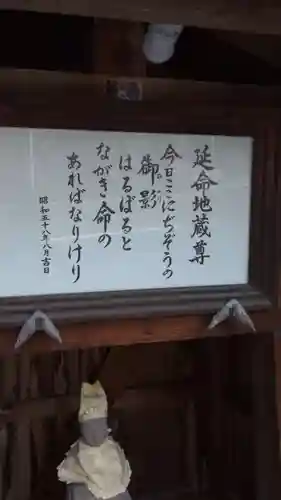 延命地蔵尊
今日ここにぢぞうの
御影
はるばると
ながき命の
あればなりけり
昭和五十八年八月吉日